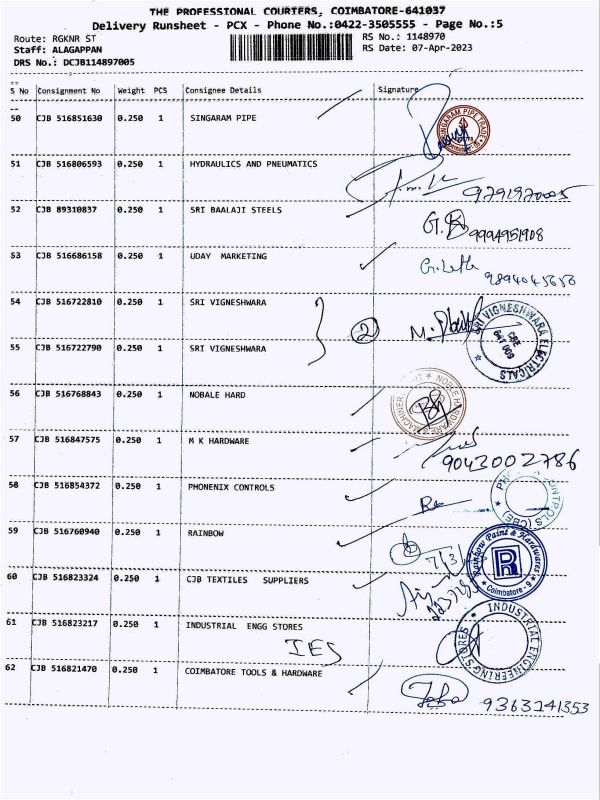 THE PROFESSIONAL COURIERS, COIMBATORE-641037
Delivery Runsheet - PCX - Phone No.:0422-3505555 - Page No.:5
Route: RGKNR ST RS No.: 1148970
Staff: ALAGAPPAN RS Date: 07-Apr-2023
DRS No.: DCJB114897005
S No Consignment No Weight PCS Consignee Details Signature
50 CJB 516851630 0.250 1 SINGARAM PIPE
51 CJB 516806593 0.250 1 HYDRAULICS AND PNEUMATICS
52 CJB 89310837 0.250 1 SRI BAALAJI STEELS 9994951908
53 CJB 516686158 0.250 1 UDAY MARKETING
54 CJB 516722810 0.250 1 SRI VIGNESHWARA 2 SRI VIGNESHWARA ELECTRICALS CBE 641 009
55 CJB 516722790 0.250 1 SRI VIGNESHWARA
56 CJB 516768843 0.250 1 NOBALE HARD
57 CJB 516847575 0.250 1 M K HARDWARE 9043002786
58 CJB 516854372 0.250 1 PHONENIX CONTROLS
59 CJB 516760940 0.250 1 RAINBOW Rainbow Paint & Hardwares R Coimbatore - 9
60 CJB 516823324 0.250 1 CJB TEXTILES SUPPLIERS
61 CJB 516823217 0.250 1 INDUSTRIAL ENGG STORES INDUSTRIAL ENGINEERING STORES
IES
62 CJB 516821470 0.250 1 COIMBATORE TOOLS & HARDWARE 9363241353